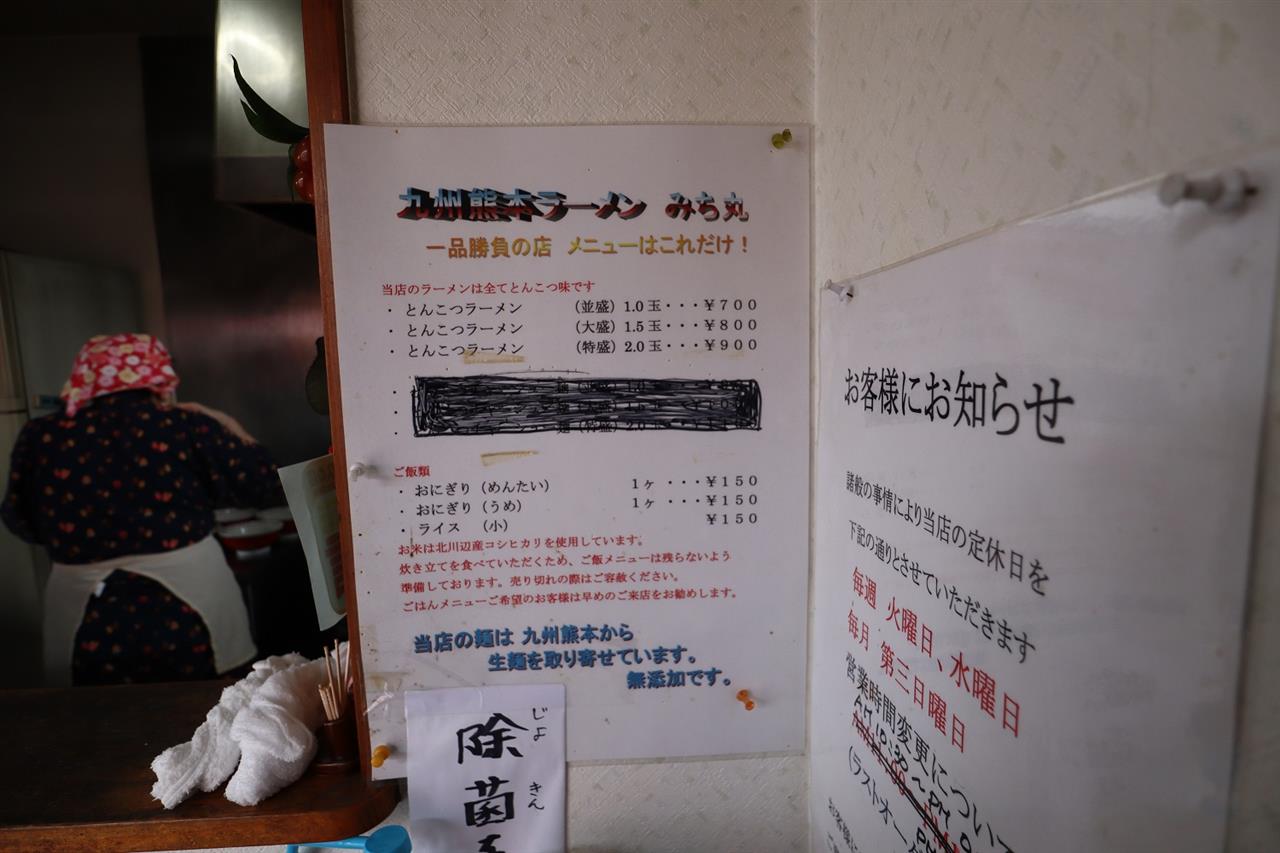 九州熊本ラーメン みち丸
一品勝負の店 メニューはこれだけ！
当店のラーメンは全てとんこつ味です
・とんこつラーメン （並盛）1.0玉・・・￥700
・とんこつラーメン （大盛）1.5玉・・・￥800
・とんこつラーメン （特盛）2.0玉・・・￥900
ご飯類
・おにぎり（めんたい） 1ヶ・・・￥150
・おにぎり（うめ） 1ヶ・・・￥150
・ライス （小） ￥150
お米は北川辺産コシヒカリを使用しています。
炊き立てを食べていただくため、ご飯メニューは残らないよう
準備しております。売り切れの際はご容赦ください。
ごはんメニューご希望のお客様は早めのご来店をお勧めします。
当店の麺は 九州熊本から
生麺を取り寄せています。
無添加です。
除菌
じょ
きん
お客様にお知らせ
諸般の事情により当店の定休日を
下記の通りとさせていただきます
毎週 火曜日、水曜日
毎月 第三日曜日
営業時間変更について
AM10:30～PM
（ラストオー
お客様に